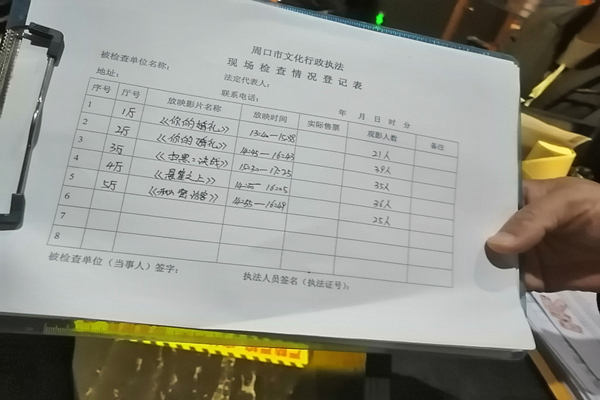 周口市文化行政执法
现场检查情况登记表
被检查单位名称:
法定代表人:
地址:
联系电话:
年 月 日 时 分
序号 厅号 放映影片名称 放映时间 实际售票 观影人数 备注
1 1厅 《你的婚礼》 13:40—15:48 21人
2 2厅 《你的婚礼》 14:45—16:43 39人
3 3厅 15:20—17:25 35人
4 4厅 《悬崖之上》 16:05 36人
5 5厅 《秘密访客》 14:55—16:49 25人
6
7
8
被检查单位(当事人)签字:
执法人员签名(执法证号):